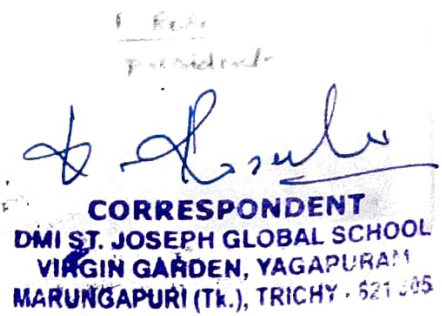 President
CORRESPONDENT
DMI ST. JOSEPH GLOBAL SCHOOL
VIRGIN GARDEN, YAGAPURAM
MARUNGAPURI (Tk.), TRICHY -